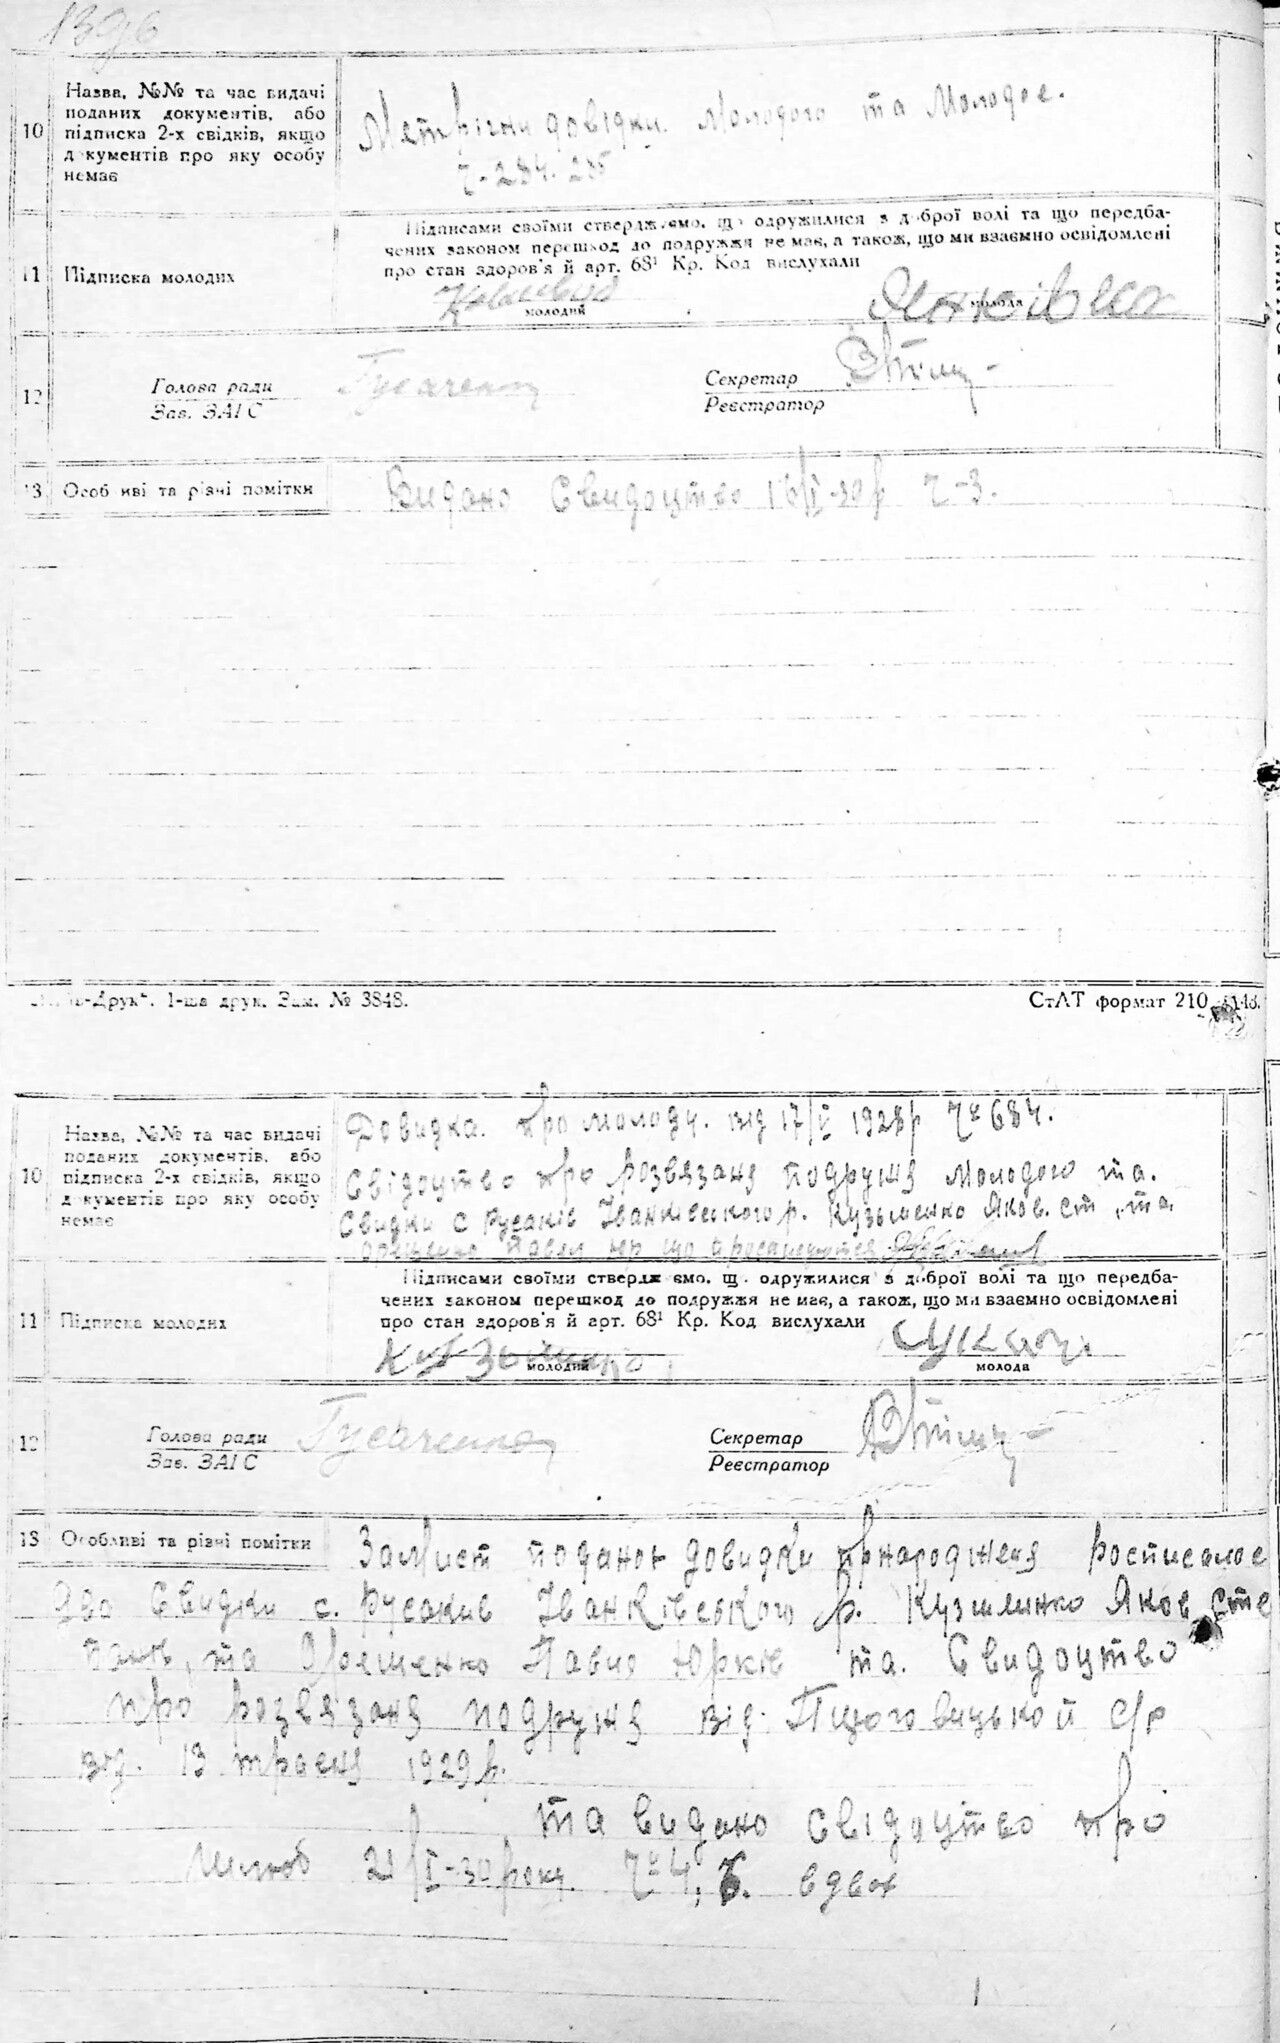 139б
10
Назва, №№ та час видачі
поданих документів, або
підписка 2-х свідків, якщо
д кументів про яку особу
немає
Метрічни довідки. Молодого та Молодое.
ч-234. 235
11
Підписка молодих
Підписами своїми стверджуємо, що одружилися з доброї волі та що передба-
чених законом перешкод до подружжя не має, а також, що ми взаємно освідомлені
про стан здоров'я й арт. 68¹ Кр. Код вислухали
молодий
молода
Янківна
12
Голова ради
Зав. ЗАГС
Гусаченко
Секретар
Реєстратор
13
Особ иві та різні помітки
Видано Свидоцтво 16/I-30р ч-3.
-Друк". 1-ша друк. Зам. № 3848.
СтАТ формат 210 148.
10
Назва, №№ та час видачі
поданих документів, або
підписка 2-х свідків, якщо
д кументів про яку особу
немає
Довидка. про молоду. від 17/V 1928р ч 684.
Свідоцтво про розвязаня подружя Молодого та.
Свидки с Русаків Іванківського р. Кузьменко Яков. Ст та
11
Підписка молодих
Підписами своїми ствердж ємо, щ одружилися з доброї волі та що передба-
чених законом перешкод до подружжя не має, а також, що ми взаємно освідомлені
про стан здоров'я й арт. 68¹ Кр. Код вислухали
Кузьменко
молодий
молода
12
Голова ради
Зав. ЗАГС
Гусаченко
Секретар
Реєстратор
13
Особливі та різні помітки
Замист поданоі довидки
два Свидки с. Русакив Іванківського р. Кузменко Яков Сте
панів, та Орещенко Павло Юрків та. Свидоцтво
про розвязаня подружя від. с/р
від. 13 травня 1929р.
та видано свідоцтво про
шлюб 21/I-30року ч 4,